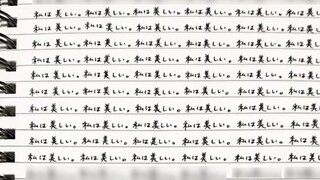 私は美しい。私は美しい。私は美しい。私は美しい。私は美しい。私は美しい。
私は美しい。私は美しい。私は美しい。私は美しい。私は美しい。私は美しい。
私は美しい。私は美しい。私は美しい。私は美しい。私は美しい。私は美しい。
私は美しい。私は美しい。私は美しい。私は美しい。私は美しい。私は美しい。
私は美しい。私は美しい。私は美しい。私は美しい。私は美しい。私は美しい。
私は美しい。私は美しい。私は美しい。私は美しい。私は美しい。私は美しい。
私は美しい。私は美しい。私は美しい。私は美しい。私は美しい。私は美しい。
私は美しい。私は美しい。私は美しい。私は美しい。私は美しい。私は美しい。
私は美しい。私は美しい。私は美しい。私は美しい。私は美しい。私は美しい。
私は美しい。私は美しい。私は美しい。私は美しい。私は美しい。私は美しい。